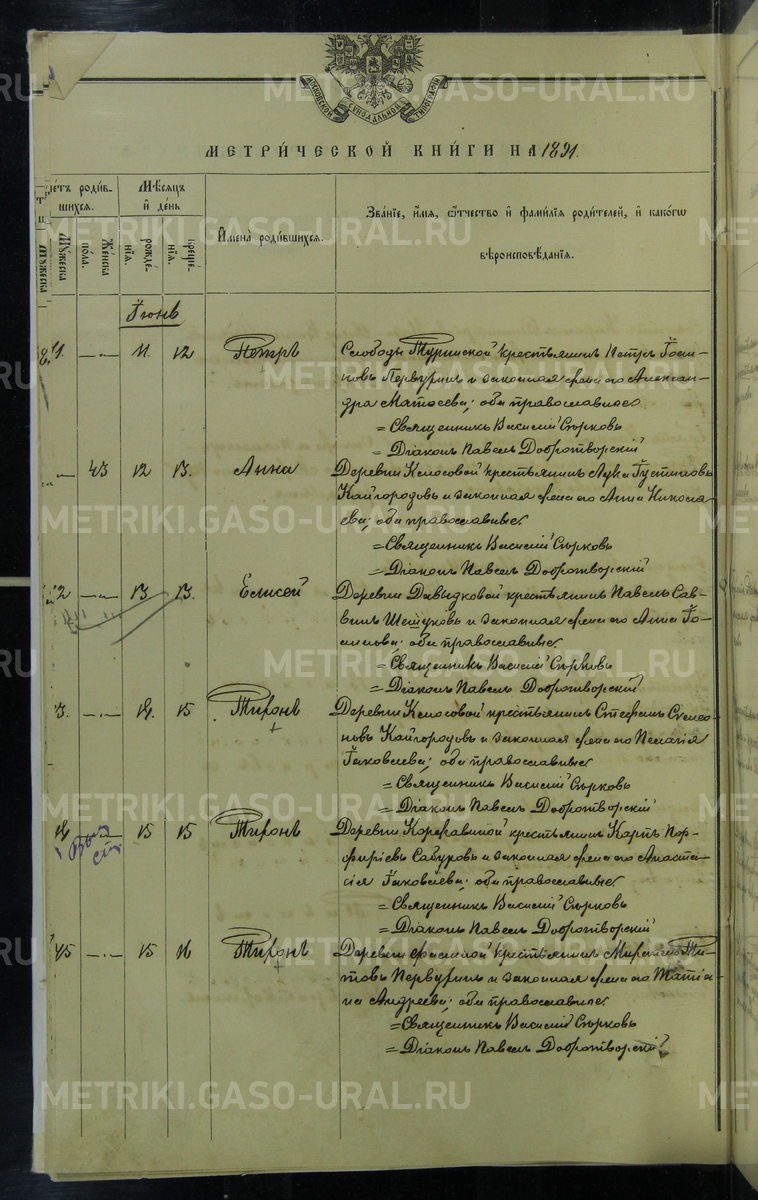 МОСКОВСКОЙ СѴНОДАЛЬНОЙ ТИПОГРАФІИ
МЕТРИ́ЧЕСКОЙ КНИ́ГИ НА 1891.
Мѣсяцъ
и҆ де́нь
шихся.
Мꙋжеска
пола.
Же́нска
рожде́-
нїя.
креще́-
нїя.
И҆мена̀ роди́вшихся.
Зва́нїе, и҆́мя, ѻ҆́тчество и҆ фамі́лїя роди́телей, и҆ како́гѡ
вѣроисповѣ́данїя.
Іюнь
11 12 Петръ
Слободы Туринской крестьянинъ Петръ Іоси-
повъ Первухинъ и законная жена его Алексан-
дра Матѳеева; оба православные.
= Священникъ Василій Сѣрковъ
= Діаконъ Павелъ Добротворскій
43 12 13. Анна
Деревни Колосовой крестьянинъ Лука Іустиновъ
Кайгородовъ и законная жена его Анна Никола-
ева; оба православные.
= Священникъ Василій Сѣрковъ
= Діаконъ Павелъ Добротворскій
2 13. 13. Елисей
Деревни Давыдковой крестьянинъ Павелъ Сав-
винъ и законная жена его Анна Іо-
; оба православные.
= Священникъ Василій Сѣрковъ
= Діаконъ Павелъ Добротворскій
3. 14. 15 Тихонъ
Деревни Колосовой крестьянинъ Стефанъ Симео-
новъ Кайгородовъ и законная жена его Пелагія
Іаковлева; оба православные.
= Священникъ Василій Сѣрковъ
= Діаконъ Павелъ Добротворскій
14 15 15 Тихонъ
Деревни крестьянинъ Карпъ Пор-
фиріевъ Сабуровъ и законная жена его Анаста-
сія Іаковлева; оба православные.
= Священникъ Василій Сѣрковъ
= Діаконъ Павелъ Добротворскій
45 15 16 Тихонъ
Деревни крестьянинъ Ти-
товъ Первухинъ и законная жена его Татіа-
на Андреева; оба православные.
= Священникъ Василій Сѣрковъ
= Діаконъ Павелъ Добротворскій
METRIKI.GASO-URAL.RU